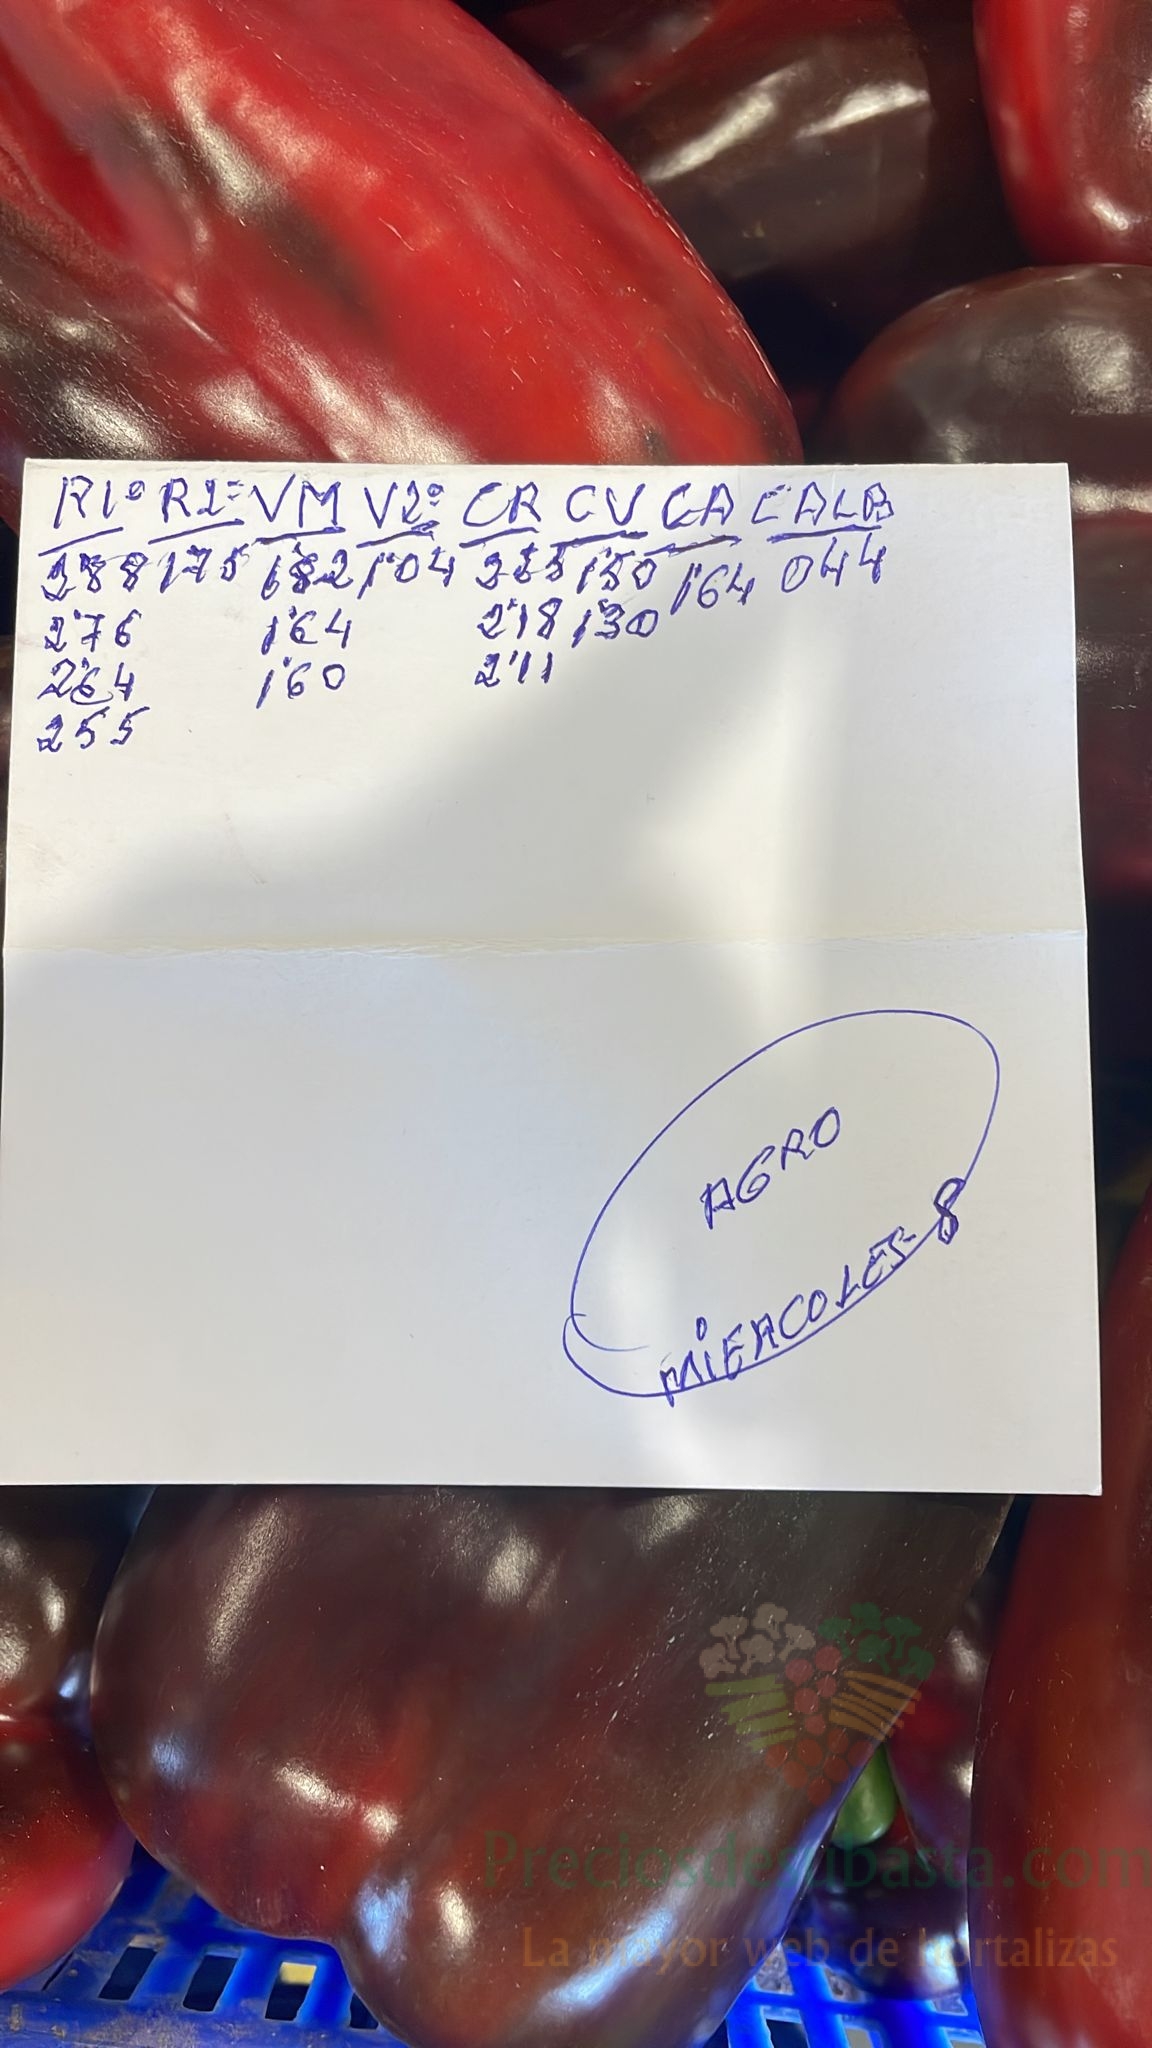 R1º R2º VM V2º CR CV CA CALB
2'88 1'75 1'82 1'04 2'25 1'50 1'64 044
2'76 1'64 2'18 1'30
2'64 1'60 2'11
255
AGRO
MIERCOLES-8
Preciosdesubasta.com
La mayor web de hortalizas